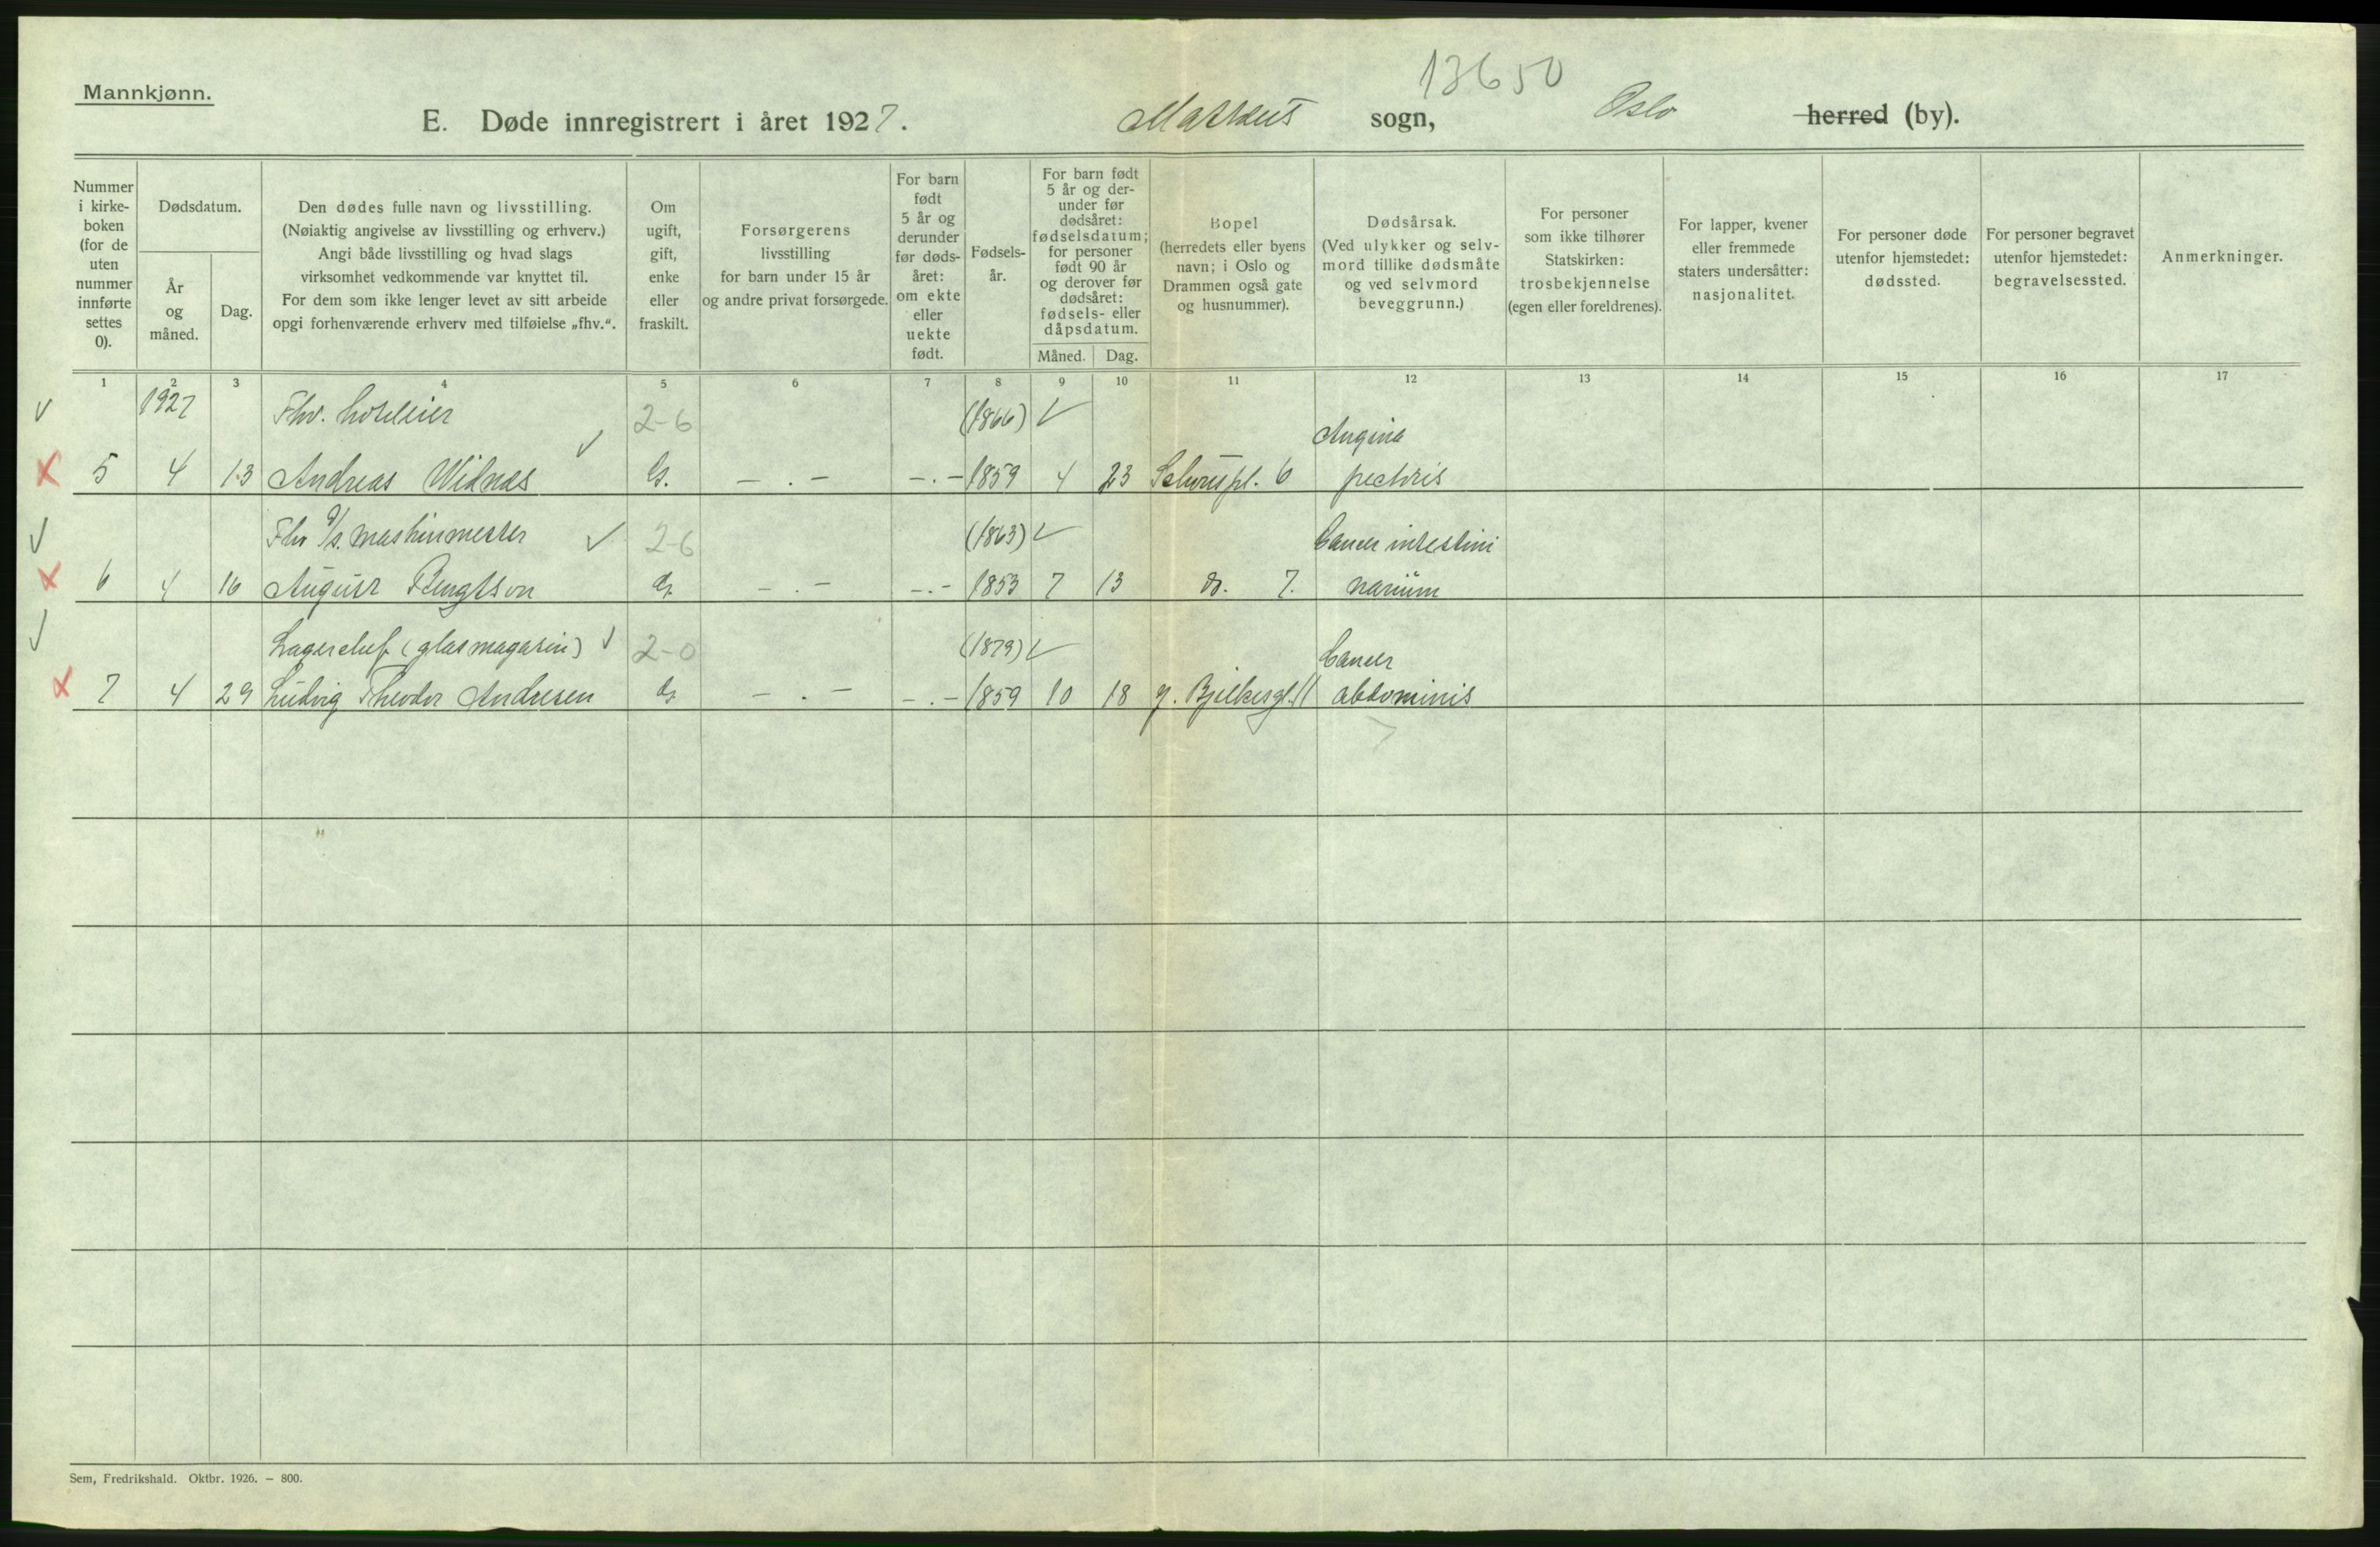 13650
Mannkjønn.
E. Døde innregistrert i året 1927. Markus sogn, Oslo herred (by).
Nummer i kirke-boken (for de uten nummer innførte settes 0).
Dødsdatum.
År og måned.
Dag.
Den dødes fulle navn og livsstilling.
(Nøiaktig angivelse av livsstilling og erhverv.)
Angi både livsstilling og hvad slags
virksomhet vedkommende var knyttet til.
For dem som ikke lenger levet av sitt arbeide
opgi forhenværende erhverv med tilføielse „fhv.“.
Om ugift, gift, enke eller fraskilt.
Forsørgerens
livsstilling
for barn under 15 år
og andre privat forsørgede.
For barn født 5 år og derunder før døds-året: om ekte eller uekte født.
Fødsels-år.
For barn født 5 år og der-under før dødsåret: fødselsdatum; for personer født 90 år og derover før dødsåret: fødsels- eller dåpsdatum.
Måned. Dag.
Bopel
(herredets eller byens
navn; i Oslo og
Drammen også gate
og husnummer).
Dødsårsak.
(Ved ulykker og selv-
mord tillike dødsmåte
og ved selvmord
beveggrunn.)
For personer
som ikke tilhører
Statskirken:
trosbekjennelse
(egen eller foreldrenes).
For lapper, kvener
eller fremmede
staters undersåtter:
nasjonalitet.
For personer døde
utenfor hjemstedet:
dødssted.
For personer begravet
utenfor hjemstedet:
begravelsessted.
Anmerkninger.
1 2 3 4 5 6 7 8 9 10 11 12 13 14 15 16 17
1927 Fhv. hotelleier 2-6 (1866) Angina
5 4 13 Andreas Widnes G. - . - - . - 1859 4 23 Schouspl. 6 pectoris
Fhv maskinmester 2-6 (1863) Cancer intesti
6 4 16 August Bengtson do - . - - . - 1853 7 13 do. 7. narium
Lagerchef (glasmagasin) 2-0 (1879) Cancer
7 4 29 Ludvig Theodor Andresen do - . - - . - 1859 10 18 J. Bjelkesgt. 11 abdominis
Sem, Fredrikshald. Oktbr. 1926. — 800.